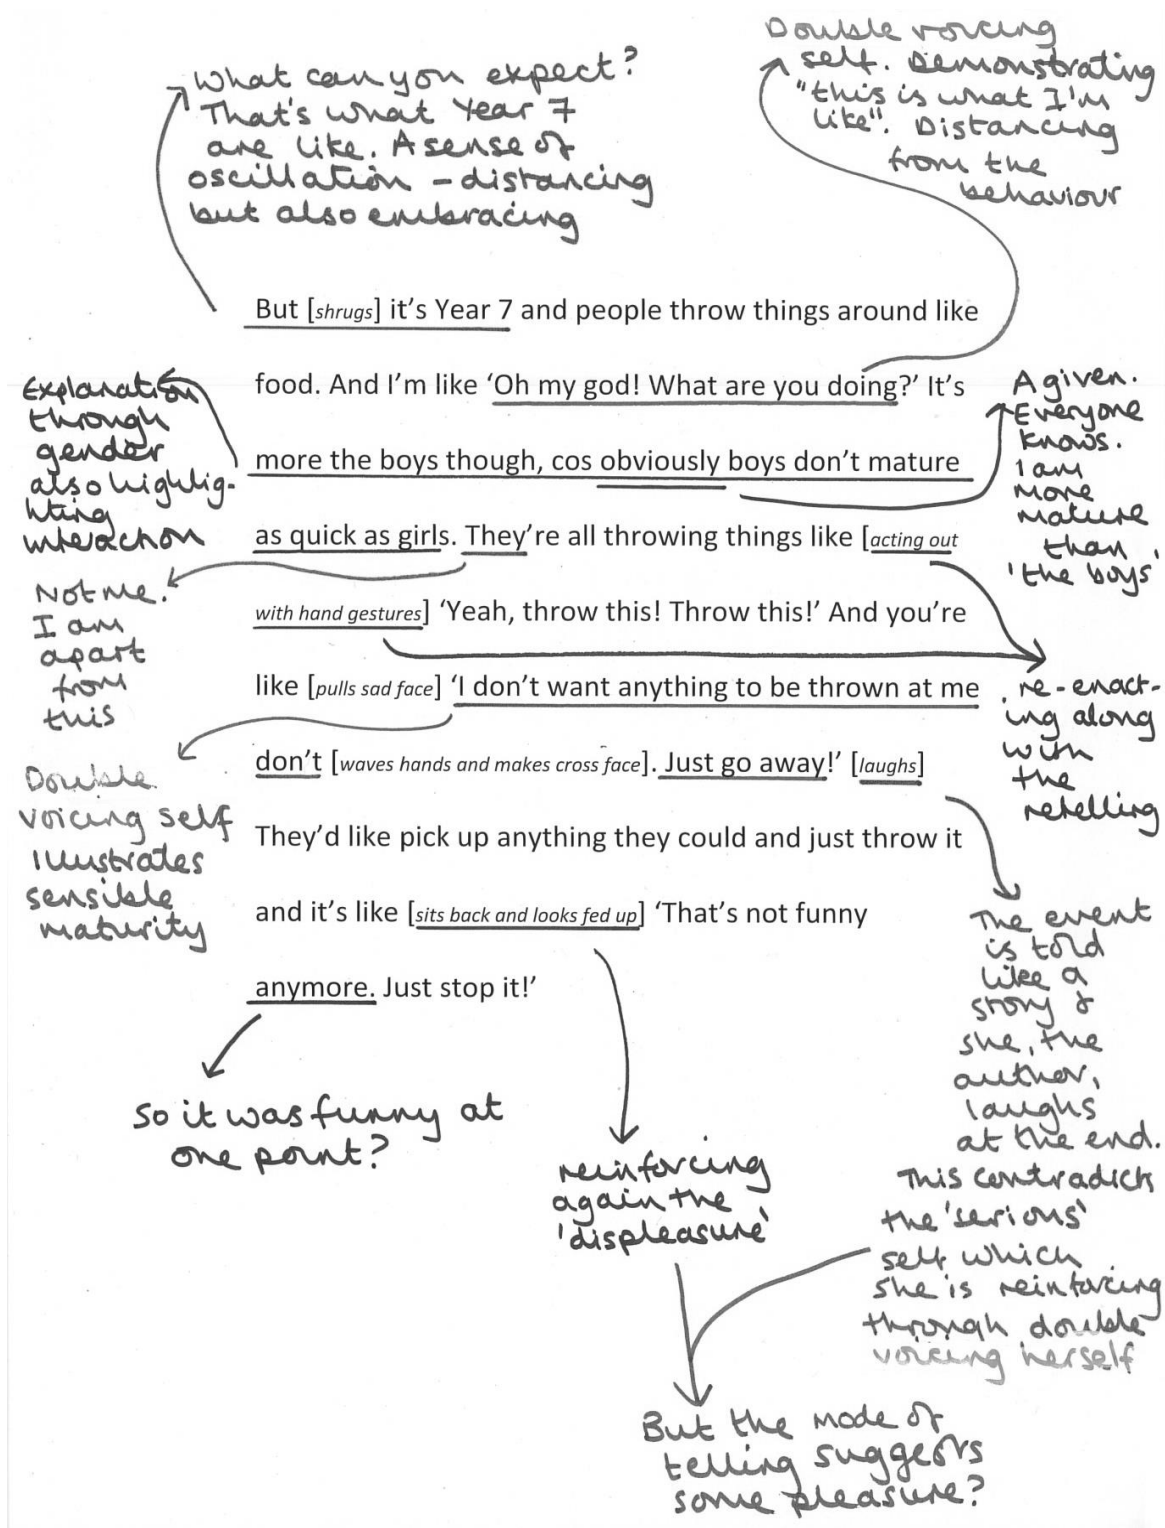 What can you expect?
That's what Year 7
are like. A sense of
oscillation - distancing
but also embracing
Double voicing
self. Demonstrating
"this is what I'm
like". Distancing
from the
behaviour
But [shrugs] it's Year 7 and people throw things around like
food. And I'm like 'Oh my god! What are you doing?' It's
more the boys though, cos obviously boys don't mature
as quick as girls. They're all throwing things like [acting out
with hand gestures] 'Yeah, throw this! Throw this!' And you're
like [pulls sad face] 'I don't want anything to be thrown at me
don't [waves hands and makes cross face]. Just go away!' [laughs]
They'd like pick up anything they could and just throw it
and it's like [sits back and looks fed up] 'That's not funny
anymore. Just stop it!'
Explanation
through
gender
also highlig-
hting
interaction
Not me.
I am
apart
from
this
Double
voicing self
illustrates
sensible
maturity
A given.
Everyone
knows.
I am
more
mature
than
'the boys'
re-enact-
ing along
with
the
retelling
The event
is told
like a
story &
she, the
author,
laughs
at the end.
This contradicts
the 'serious'
self which
she is reinforcing
through double
voicing herself
So it was funny at
one point?
reinforcing
again the
'displeasure'
But the mode of
telling suggests
some pleasure?